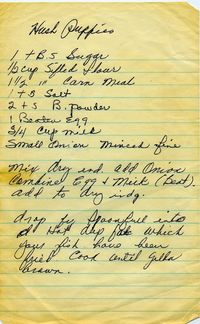 Hush Puppies
1 TBS Sugar
1/2 cup Sifted flour
1 1/2 " Corn Meal
1 TS Salt
2 TS B. Powder
1 Beaten Egg
3/4 Cup milk
Small Onion Minced fine
Mix Dry ind. add Onion
Combine Egg & Milk (Beat).
add to dry indg.
drop by Spoonfuls into
Hot deep fat which
your fish have been
fried Cook until Golden
brown.